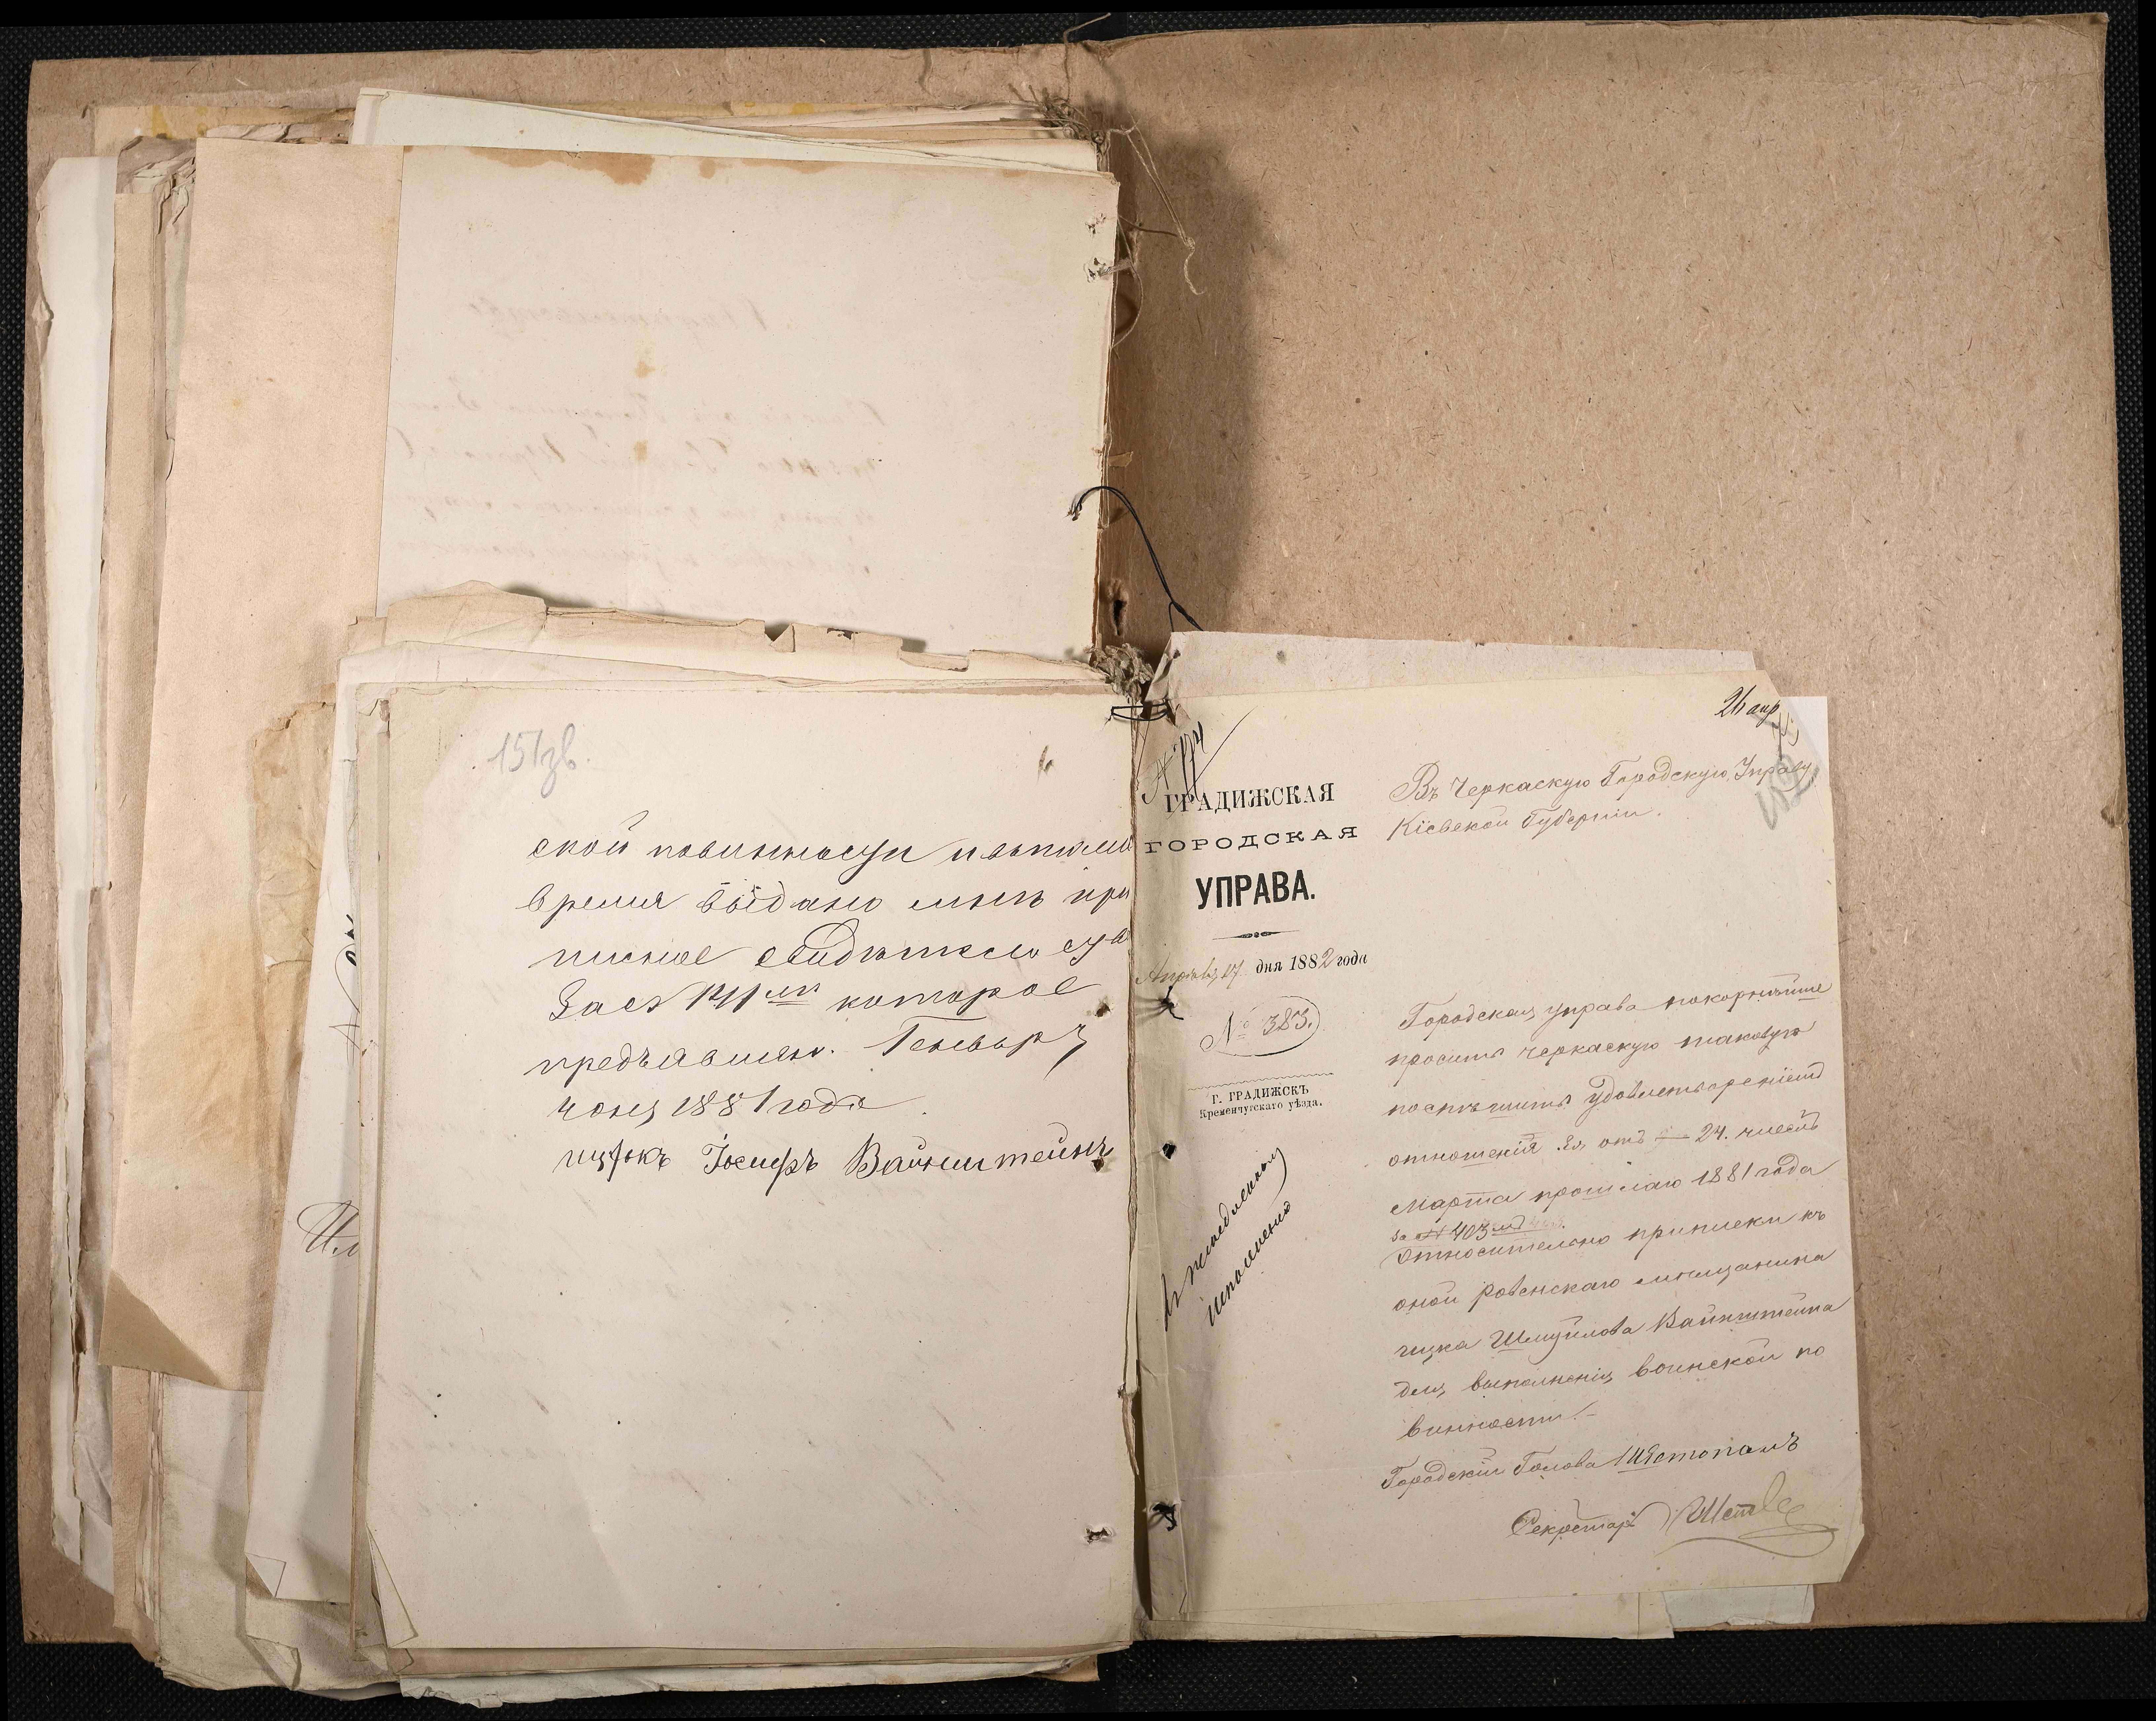 151 зв.
ской повинности и въ тоже
время выдано мнѣ при
писное свидѣтельства
за № 141мъ которое
предъявляю. Генваря
дня 1881 года
ицекъ Іосифъ Вайнштейнъ
26 апр
ГРАДИЖСКАЯ
ГОРОДСКАЯ
УПРАВА.
Апрѣля 17 дня 1882 года
№ 383.
Г. ГРАДИЖСКЪ
Кременчугскаго уѣзда.
исполненію
Въ Черкаскую Городскую Управу
Кіевской Губерніи.
Городская управа покорнѣйше
проситъ черкаскую таковую
поспѣшить удовлетвореніемъ
отношенія ея, отъ — 24. числа
марта прошлаго 1881 года
за № 403мъ
относительно приписки къ
оной ровенскаго мѣщанина
ицка Шмуйлова Вайнштейна
для выполненія воинской по
винности.—
Городской Голова Шостопалъ
Секретарь